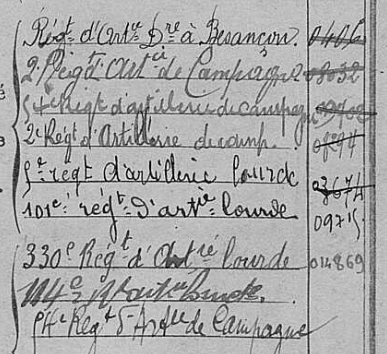 Régt d'Artie Dre à Besançon. 0406
2e Regt d'Artie de Campagne 08032
54e Régt d'artillerie de campagne
2e Régt d'Artillerie de camp.
5e regt d'artillerie lourde 03674
101e régt d'artie lourde 09715
330e Régt d'Artie lourde 014869
114e lourde.
54e Regt d'Artie de Campagne